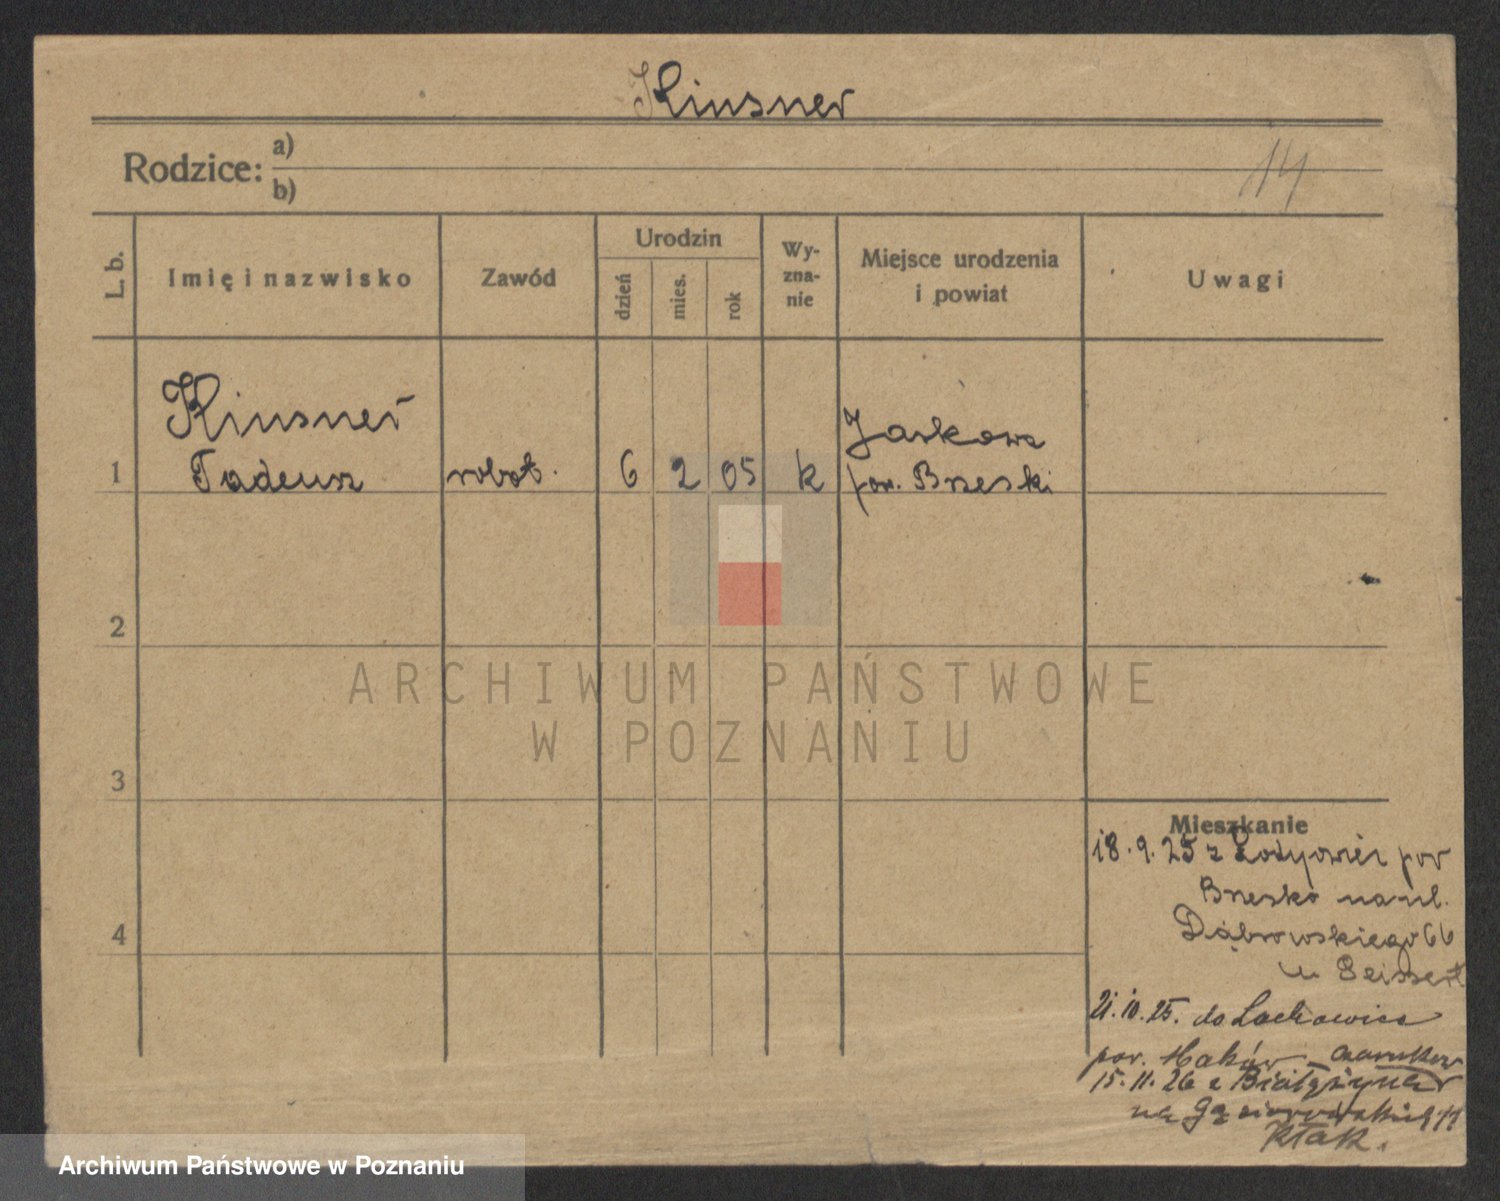 Kinsner
Rodzice: a)
b)
14
L. b.
Imię i nazwisko
Zawód
Urodzin
dzień
mies.
rok
Wy-
zna-
nie
Miejsce urodzenia
i powiat
Uwagi
Kinsner
Jaskowa
1 Tadeusz robot. 6 2 05 k pow. Brzeski
2
ARCHIWUM PAŃSTWOWE
W POZNANIU
3
4
Mieszkanie
18.9.25 z pow
Brzesko na ul.
Dąbrowskiego 66
u Seissert
21.10.25. do Lachowice
pow. Maków
15.11.26 z
na
Kłak.
Archiwum Państwowe w Poznaniu